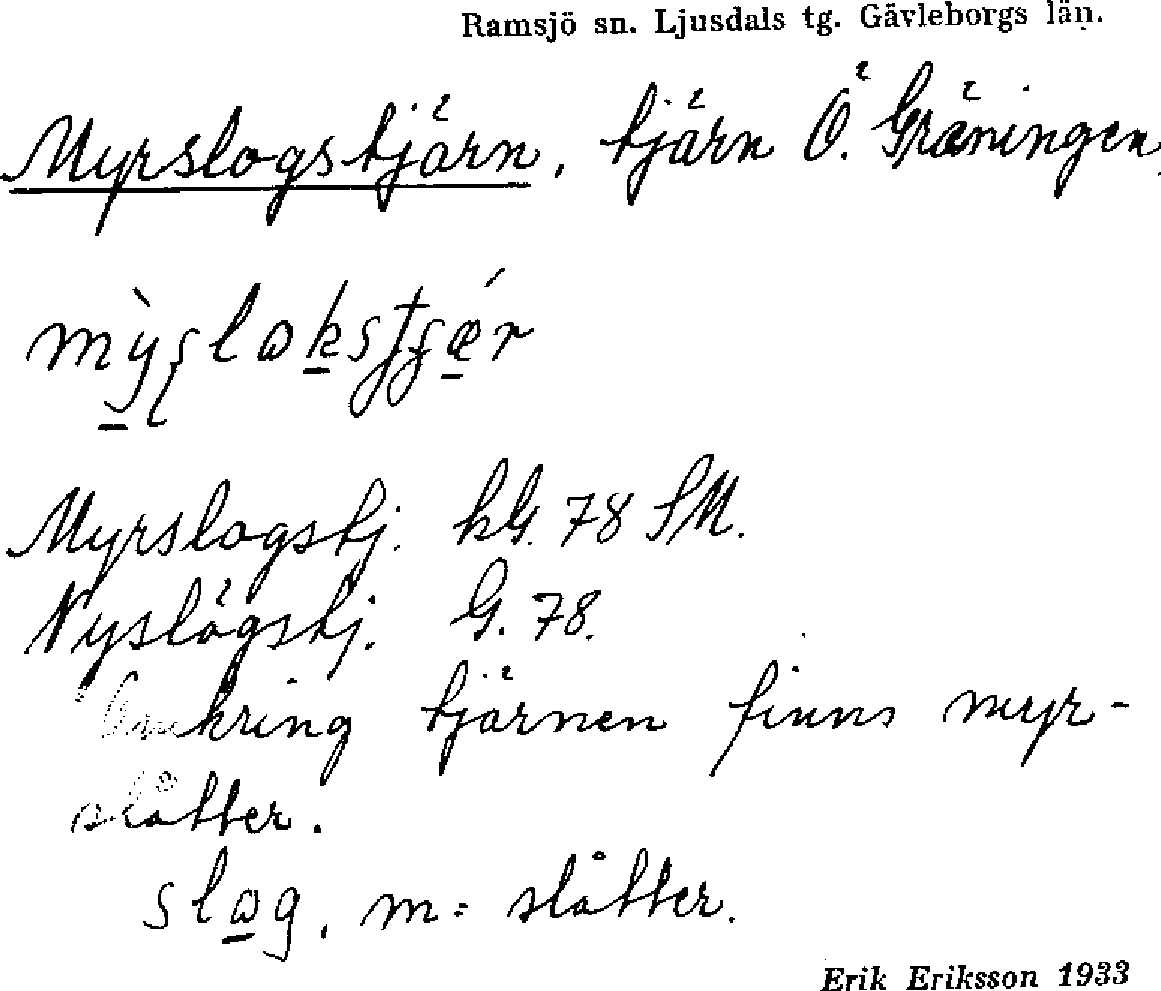 Ramsjö sn. Ljusdals tg. Gävleborgs län.
Myrslogstjärn, tjärn Ö. Gräningen.
Myrslogstj. hG. 78 SM.
Nyslågstj. G. 78.
Omkring tjärnen finns myr-
slåtter.
slɷg, m = slåtter.
Erik Eriksson 1933